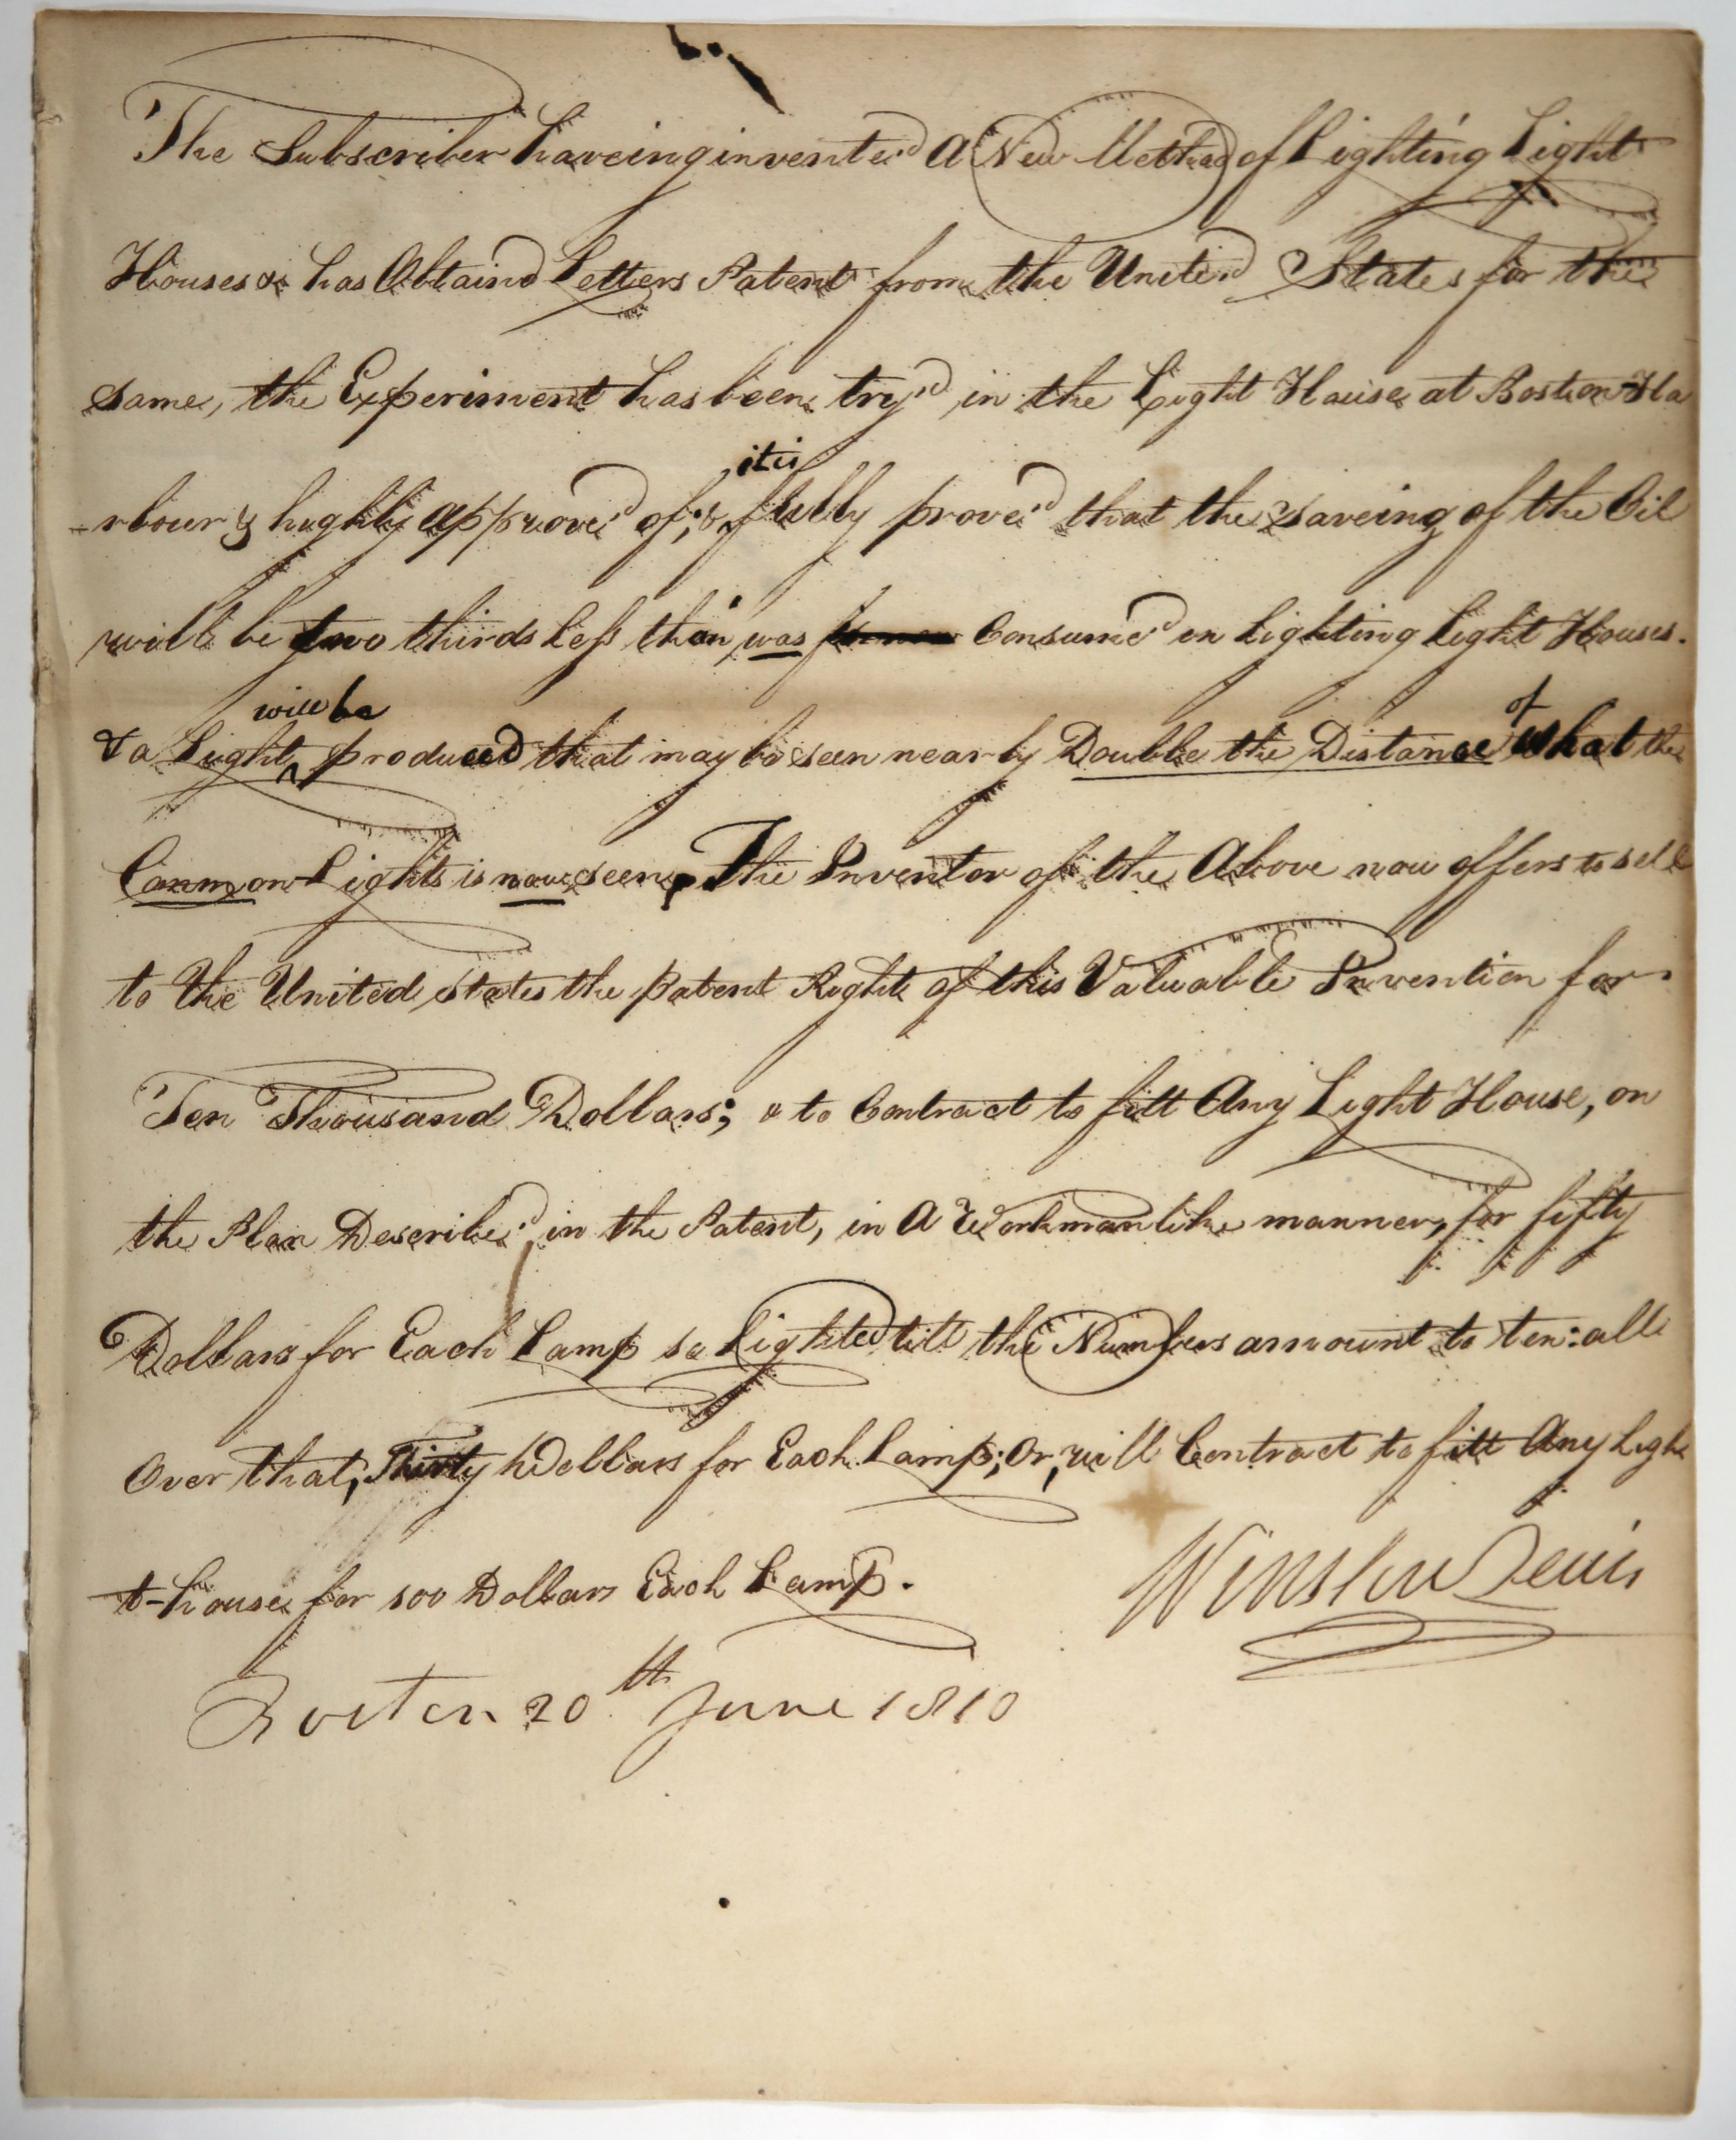 The Subscriber haveing invented A New Method of Lighting Light
Houses & has Obtaind Letters Patent from the United States for the
same, the Experiment has been try'd in the Light House at Boston Ha
-rbour & highly approve'd of; & it is fully prove'd that the saveing of the Oil
will be two thirds Less than was Consume'd in Lighting Light Houses.
& a Light will be produced that may be seen nearly Double the Distance of what the
Common Lights is now seen. The Inventor of the Above now offers to sell
to the United states the patent Right of this Valuable Invention for
Ten Thousand Dollars; & to Contract to fitt Any Light House, on
the Plan Describe'd in the Patent, in A Workmanlike manner, for fifty
Dollars for Each Lamp so Lighted till the Numbers amount to ten: all
Over that, Thirty Dollars for Each Lamp; Or, will Contract to fitt Any Ligh
t-house for 100 Dollars Each Lamp.
Winslow Lewis
Boston 20th June 1810